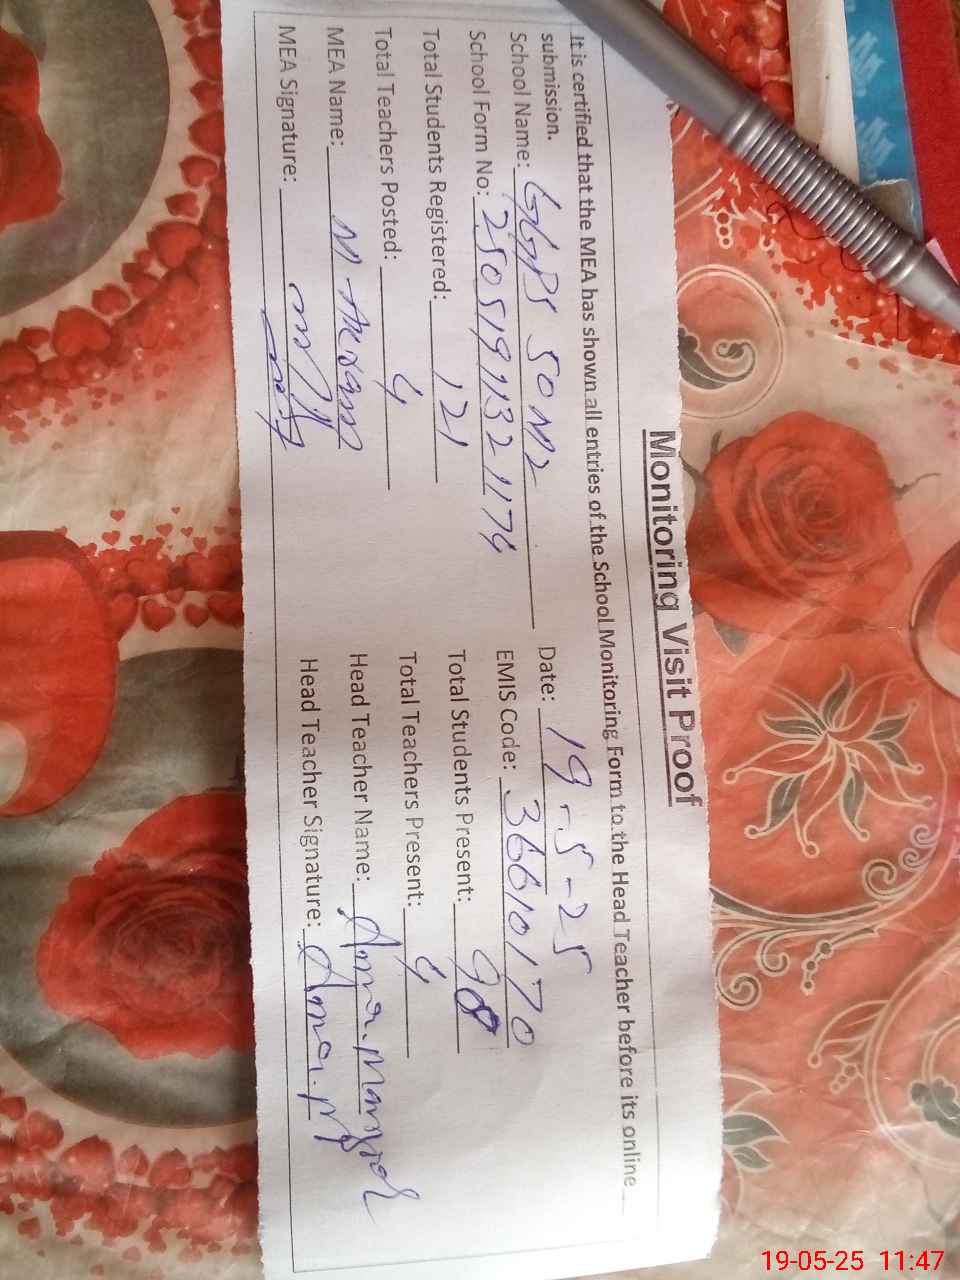 Monitoring Visit Proof
It is certified that the MEA has shown all entries of the School Monitoring Form to the Head Teacher before its online
submission.
School Name: GGPS 50 M2 Date: 19-5-25
School Form No: EMIS Code: 36610170
Total Students Registered: 121 Total Students Present:
Total Teachers Posted: 4 Total Teachers Present: 4
MEA Name: M. Akram Head Teacher Name:
MEA Signature: Head Teacher Signature:
19-05-25 11:47